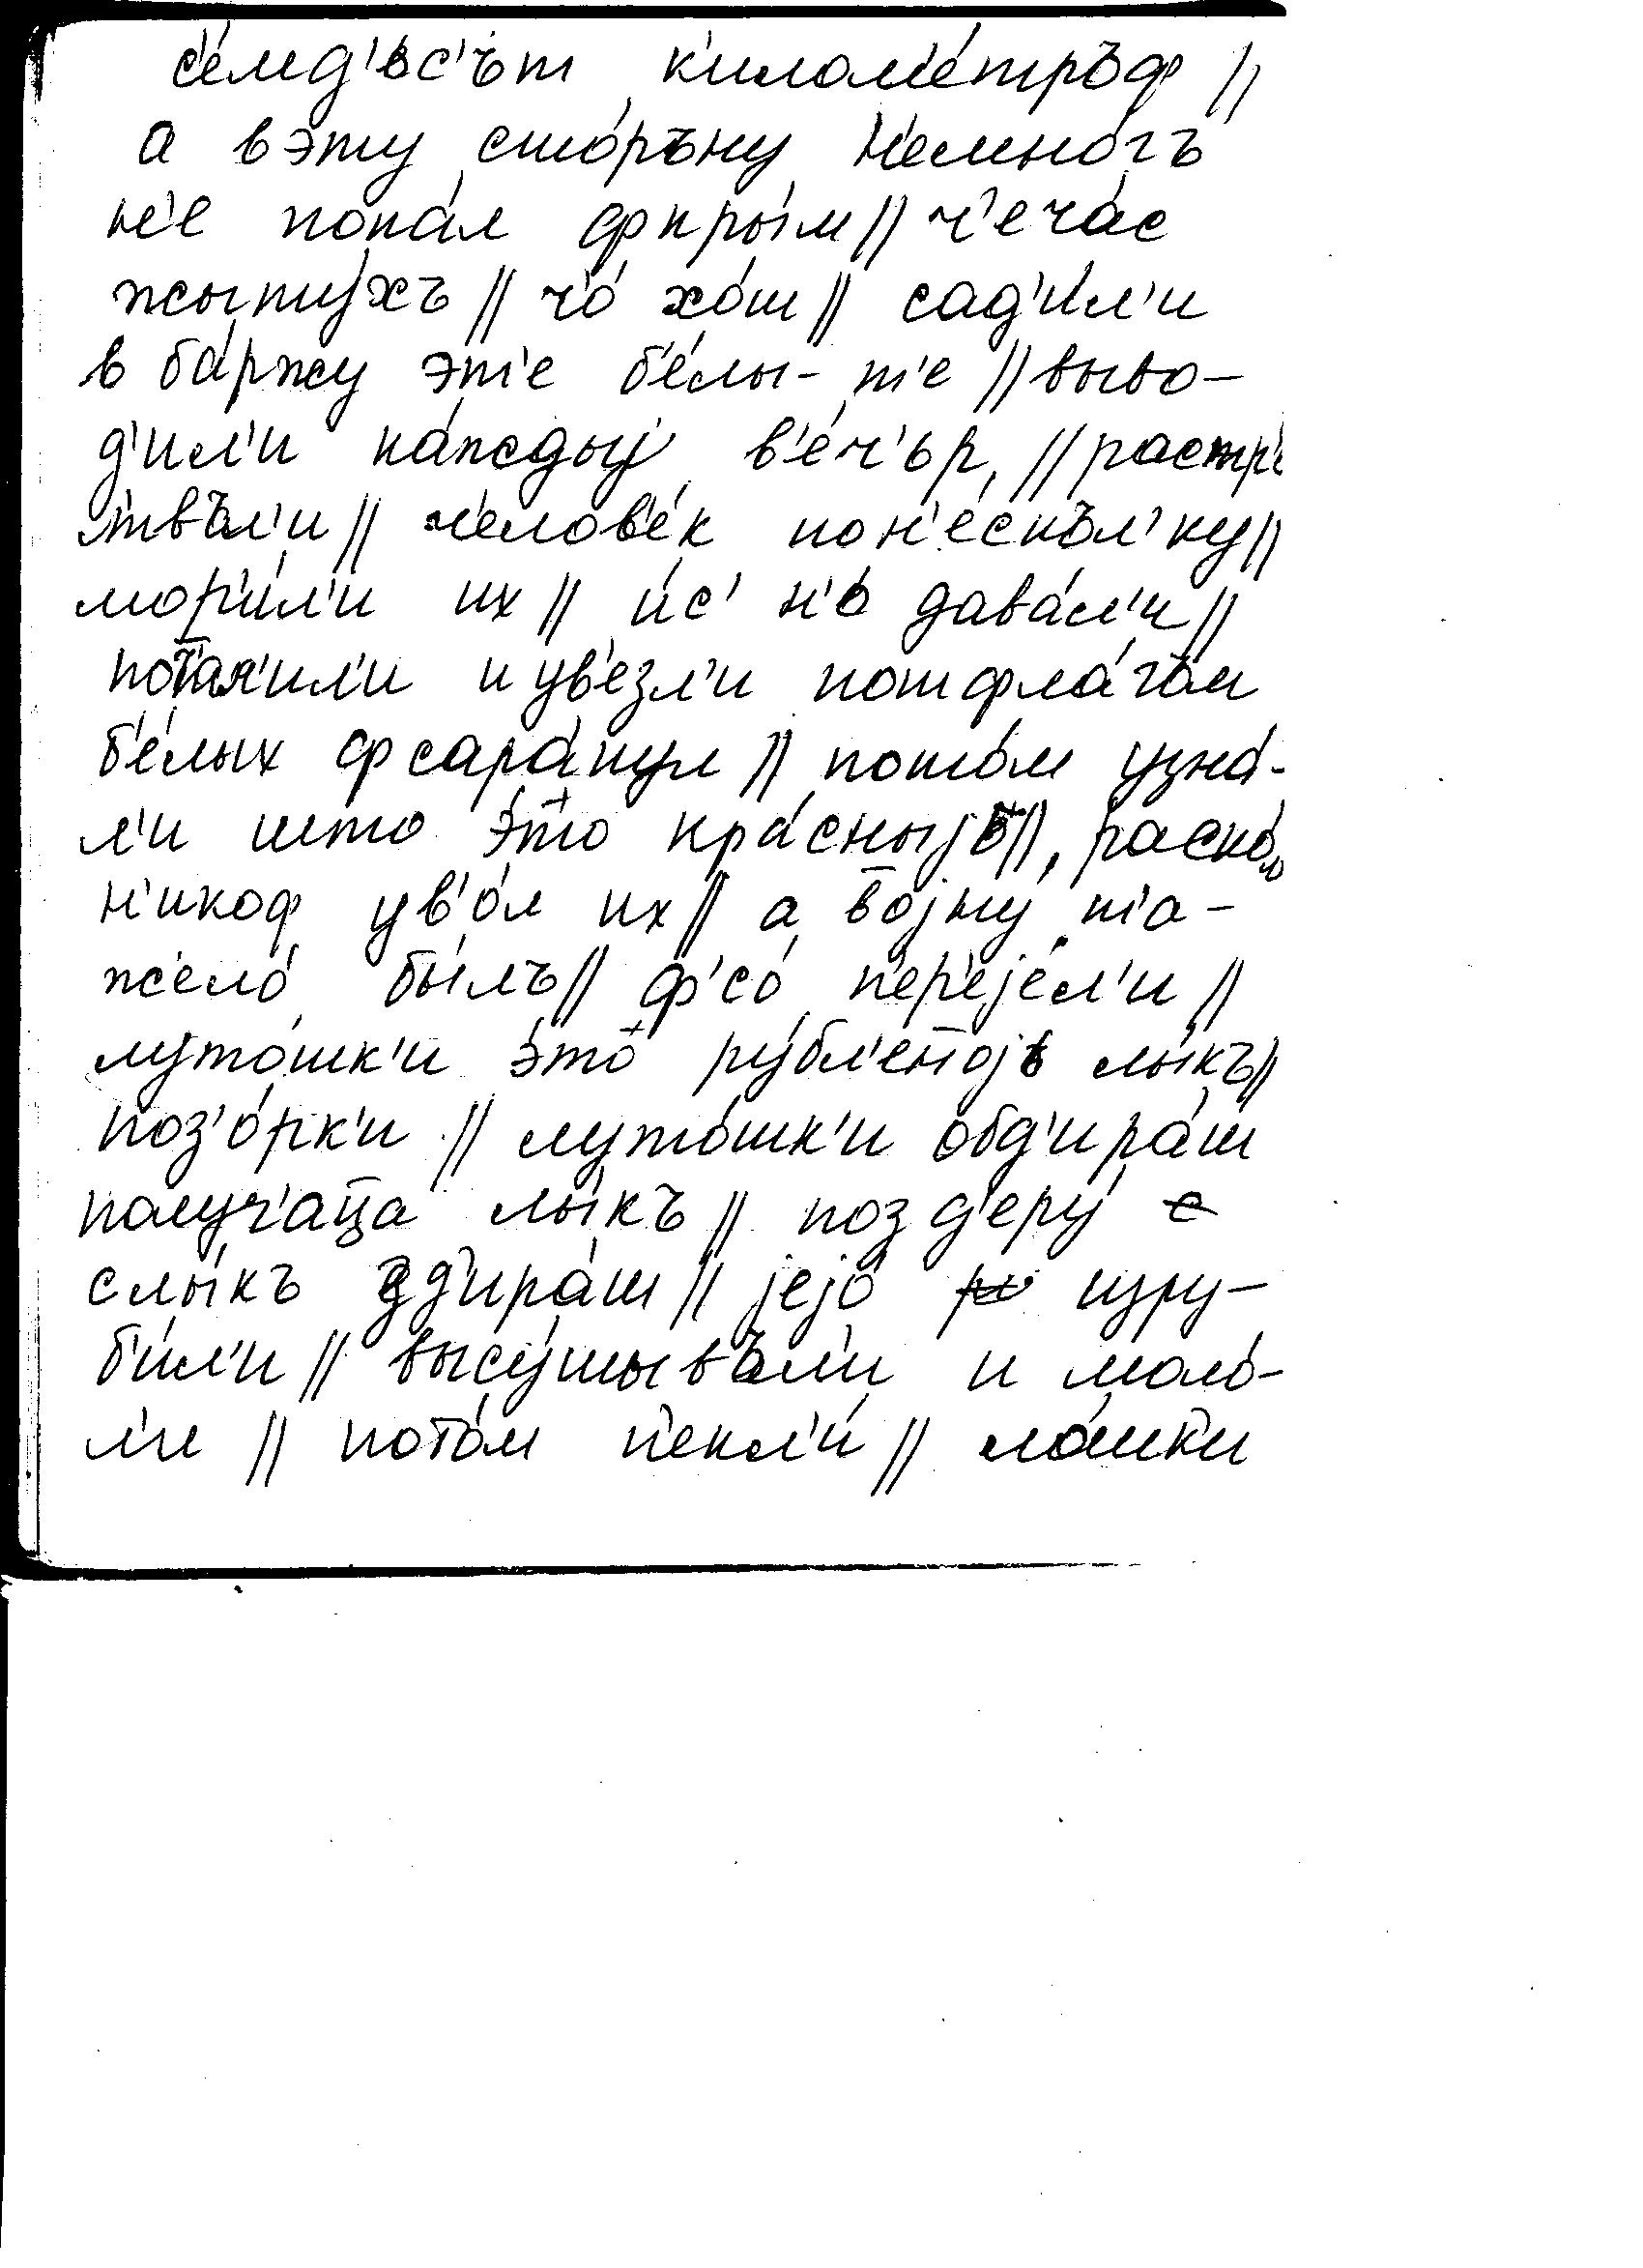 с'е́мд'ьс'ът к'илом'е́тръф //
а в эту сто́ръну н'емно́гъ
н'е попа́л фкры́м // ч'еча́с
жыту́хъ // ч'о́ хо́ш // сад'и́л'и
в ба́ржу эт'е б'е́лы-т'е // выво-
д'ил'и ка́ждыј в'е́ч'ьр, // растр'е
л'ивъл'и // ч'елов'е́к пон'е́скъл'ку //
мор'и́л'и их // и́с' н'ь дава́л'и //
по ув'езл'и потфла́гом
б'е́лых фсара́пул // пото́м узна́-
л'и што э́то кра́сныјь //, раско́л'
н'икоф ув'о́л их // а војну́ т'а-
жело́ бы́лъ // ф'с'о́ п'ер'еје́л'и //
луто́шк'и э́то ру́бл'енојь лы́къ //
поз'о́рк'и // луто́шк'и обд'ира́ш
получ'а́ца лы́къ // позд'еру́
слы́къ зд'ира́ш // јејо́ изру-
б'ил'и // высу́шывъл'и и моло́-
л'и // пото́м п'екл'и́ // л'о́пшк'и